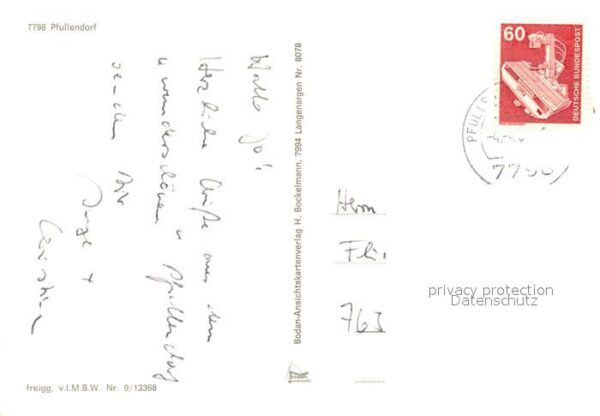 7798 Pfullendorf
Hallo Jo!
Herzliche Grüße aus dem
wunderschönen Pfullendorf
senden Dir
+
Christine
freigg. v.I.M.B.W. Nr. 9/13368
Bodan-Ansichtskartenverlag H. Bockelmann, 7994 Langenargen Nr. 8078
60
DEUTSCHE BUNDESPOST
PFULL
7798
Herrn
763
privacy protection
Datenschutz